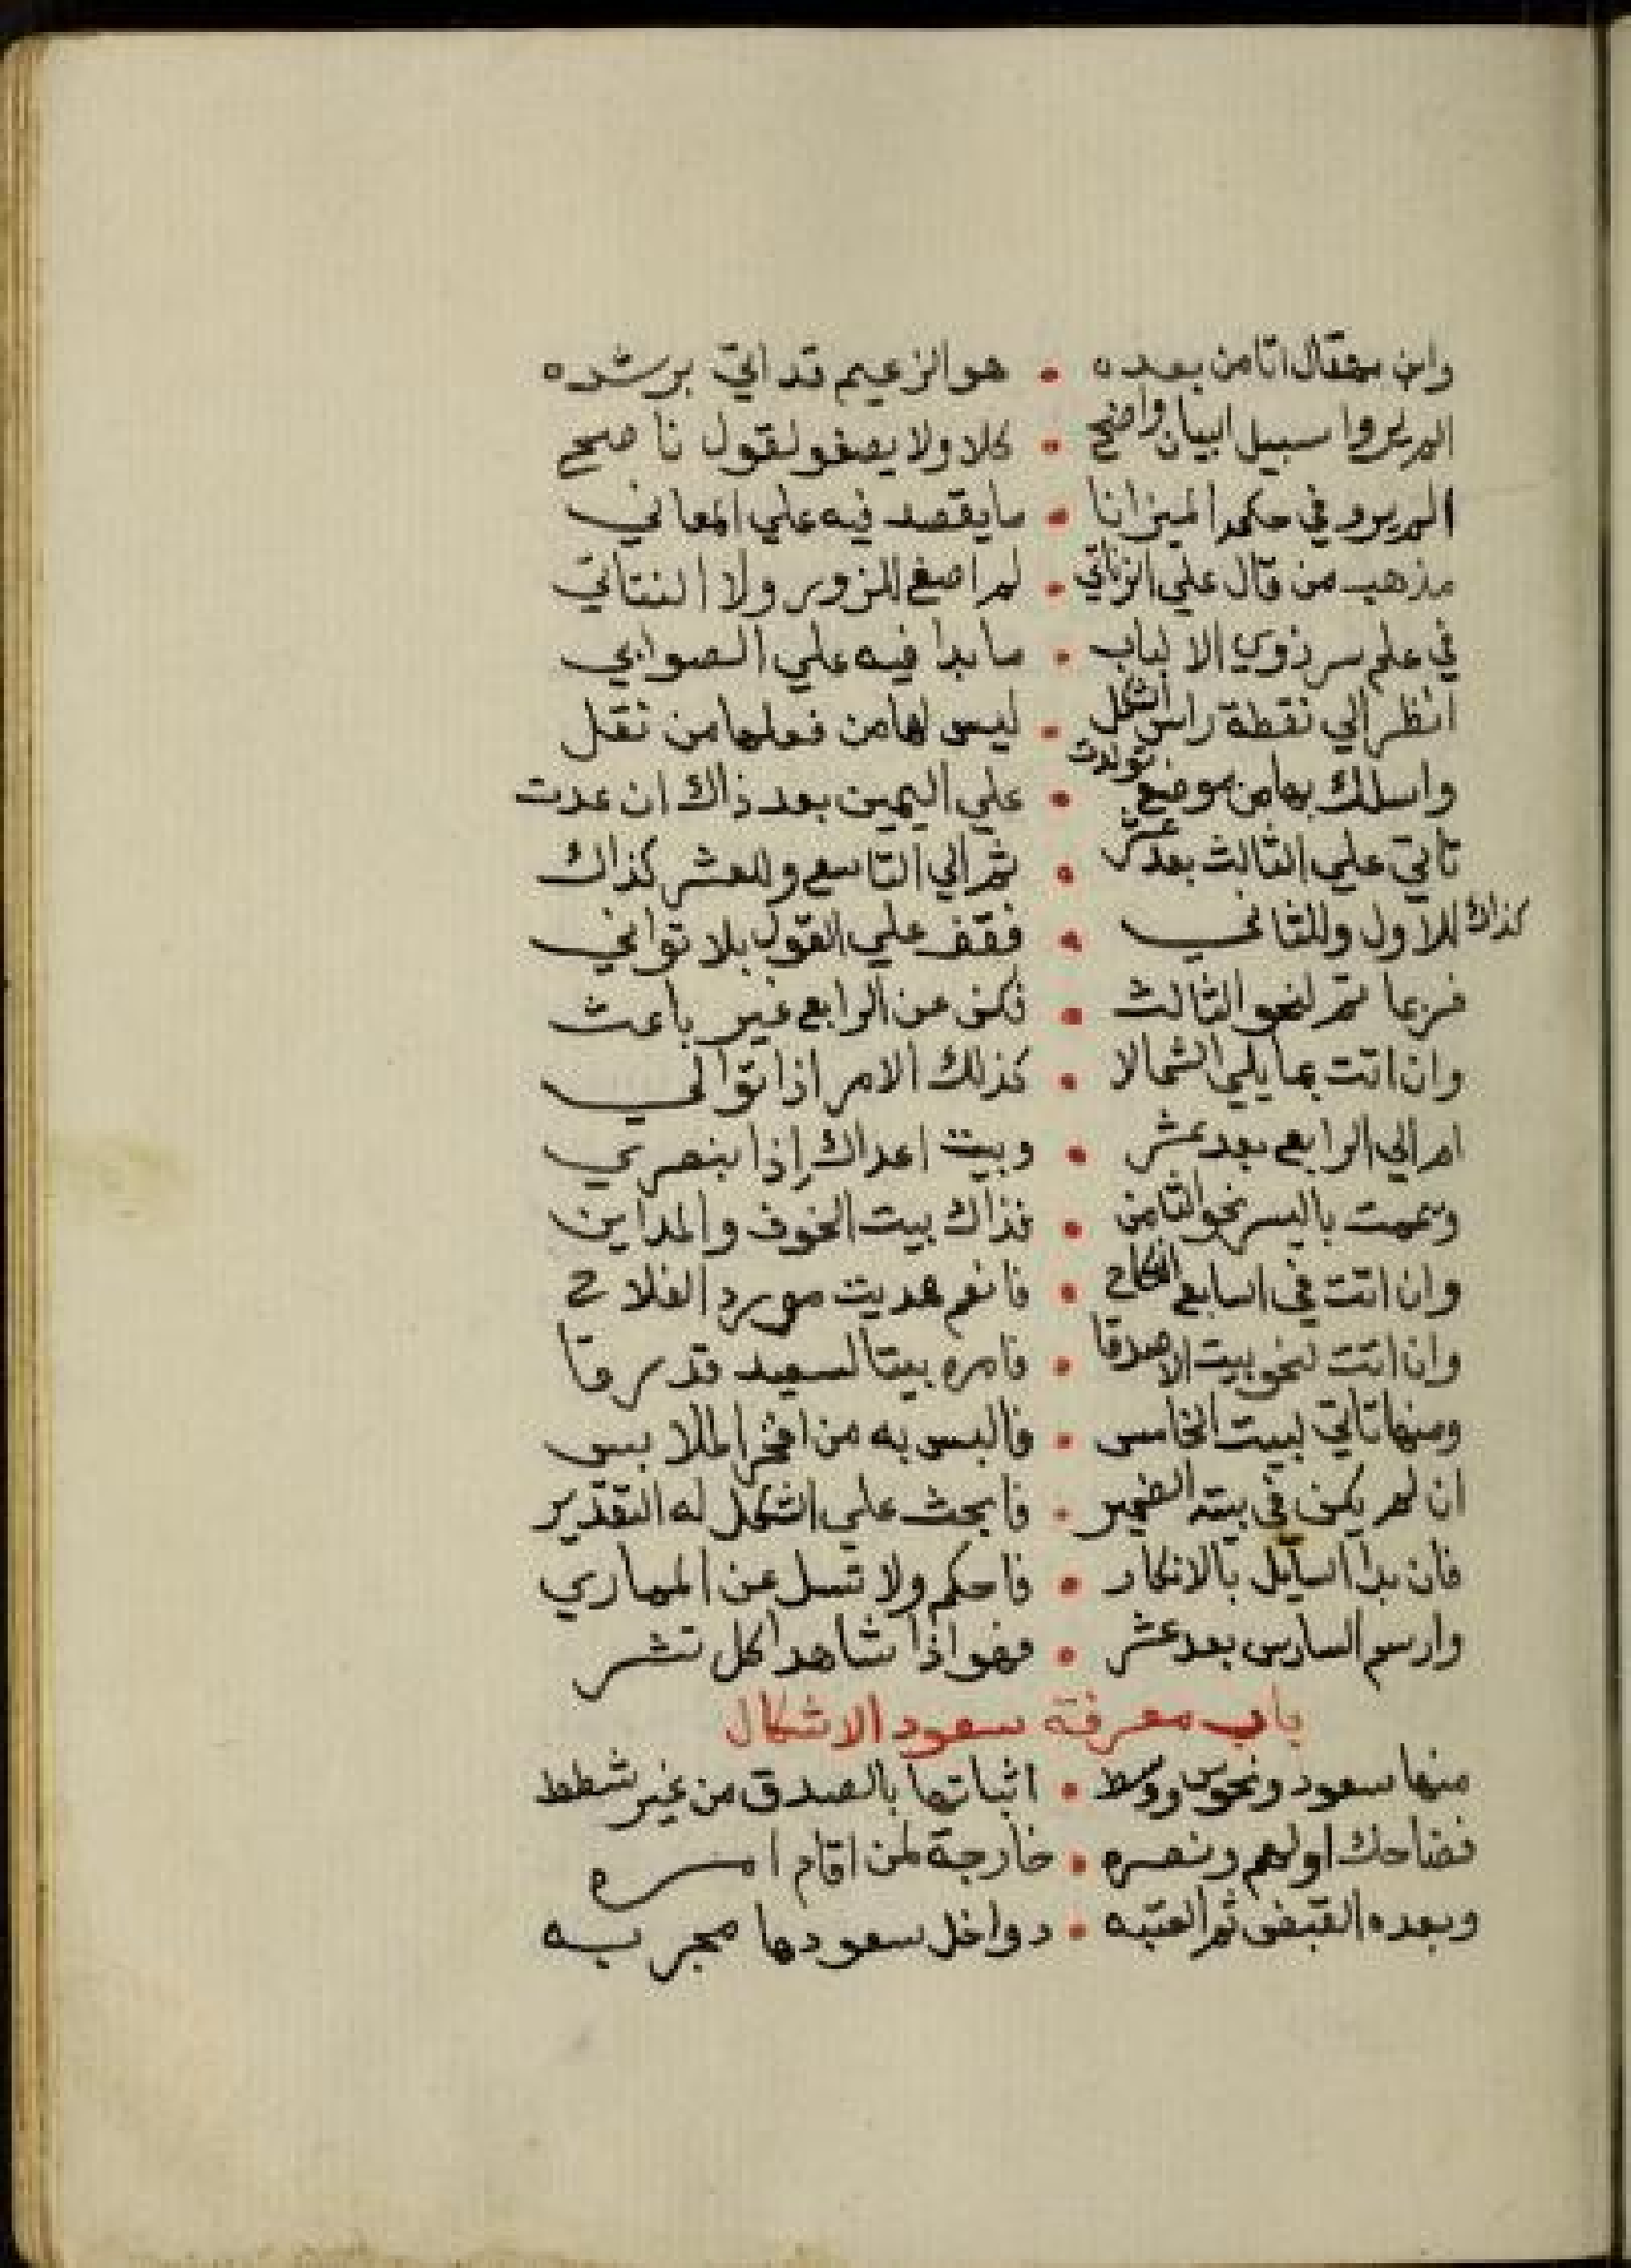 وابن سقال اتا من بعده • هو الزعيم قد اتي برشده
الم يروا سبيل ابيان واضح • كلا ولا يصغو لقول ناصح
الم يرو في حكم الميزانا • ما يقصد فيه علي المعاني
مذهب من قال علي الزناتي • لم اصغ للزور ولا
في علم سر ذوي الالباب • ما بدا فيه علي الصوابي
انظر الي نقطة راس الشكل • ليس لها من فعلها من نقل
واسلك بها من موضع تولدت • علي اليمين بعد ذاك ان عدت
تاتي علي الثالث بعد عشر • ثم الي التاسع وللعشر كذاك
كذاك للاول وللثاني • فقف علي القول بلا تواني
فربما تم لنحو الثالث • فكن عن الرابع غير باعث
وان اتت بما يلي الشمالا • كذلك الامر اذا توالي
ام الي الرابع بعد عشر • وبيت اعداك إذا بنصري
ويممت باليسر نحو الثامن • فذاك بيت الخوف والمداين
وان اتت في السابع النكاح • فانعم هديت مورد الفلاح
وان اتت لنحو بيت الاصدقا • فامره بيتا لسعيد قد رقا
ومنها تاتي لبيت الخامس • فالبس به من افخر الملابس
ان لم يكن في بيته الضمير • فابحث علي الشكل له التقدير
فان بدا السايل بالانكار • فاحكم ولا تسل عن المماري
وارسم السادس بعد عشر • فهو اذا شاهدا كل تشر
باب معرفة سعود الاشكال
منها سعود ونحوس ووسط • اثباتها بالصدق من غير شطط
فضاحك اولهم ونصره • خارجة لمن اقام امره
وبعده القبض ثم العتبه • دواخل سعودها مجربه